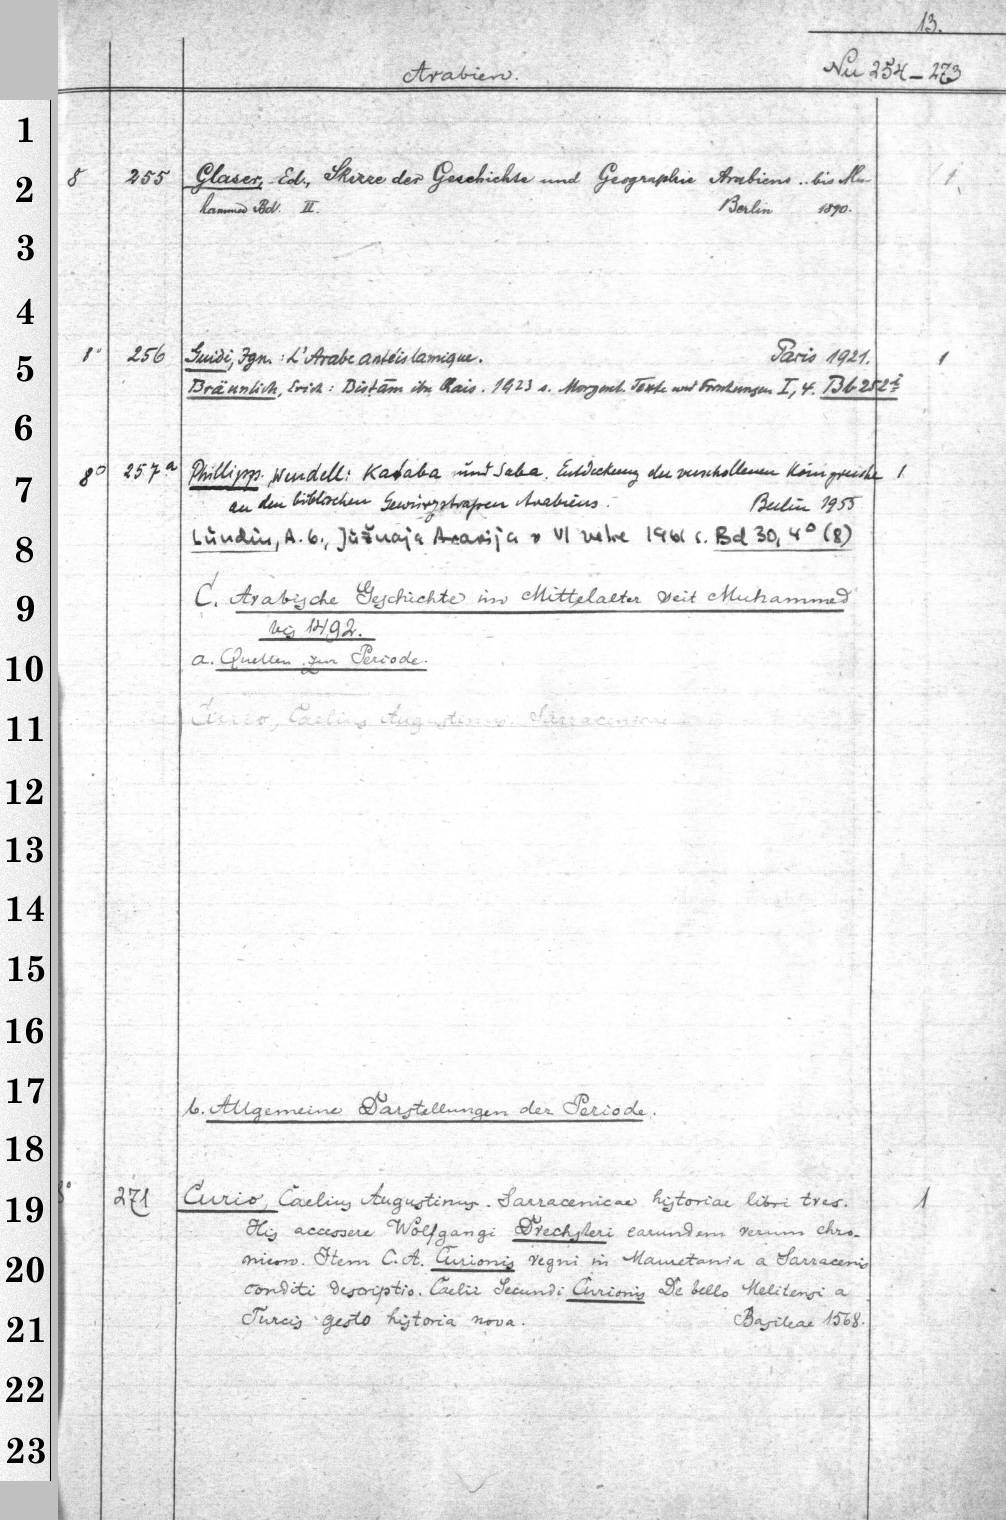 13.
Arabien. Nu 254-273
1
8 255 Glaser, Ed., Skizze der Geschichte und Geographie Arabiens .. bis Mu- 1
2
hammed Bd. II. Berlin 1890.
3
4
8° 256 Guidi, Ign. : L'Arabe antéislamique. Paris 1921. 1
5
Bräunlich, Erich : Bistām ibn Qais. 1923 s. Morgenl. Texte und Forschungen I, 4. Bb 252
6
8° 257a Phillipps, Wendell: Kataba und Saba. Entdeckung der verschollenen Königreiche 1
7
an den biblischen Gewürzstraßen Arabiens. Berlin 1955
8
Lundin, A. G., Južnaja Aravija v VI veke 1961 s. Bd 30, 4° (8)
C. Arabische Geschichte im Mittelalter seit Muhammed
9
bis 1492.
10
a. Quellen zur Periode.
11
Curio, Caelius Augustinus. Sarracenicae
12
13
14
15
16
17
b. Allgemeine Darstellungen der Periode.
18
8° 271 Curio, Caelius Augustinus. Sarracenicae historiae libri tres. 1
19
His accessere Wolfgangi Drechsleri earundem rerum chro-
20
nicon. Item C. A. Curionis regni in Mauretania a Sarracenis
conditi descriptio. Caelii Secundi Curionis De bello Melitensi a
21
Turcis gesto historia nova. Basileae 1568.
22
23